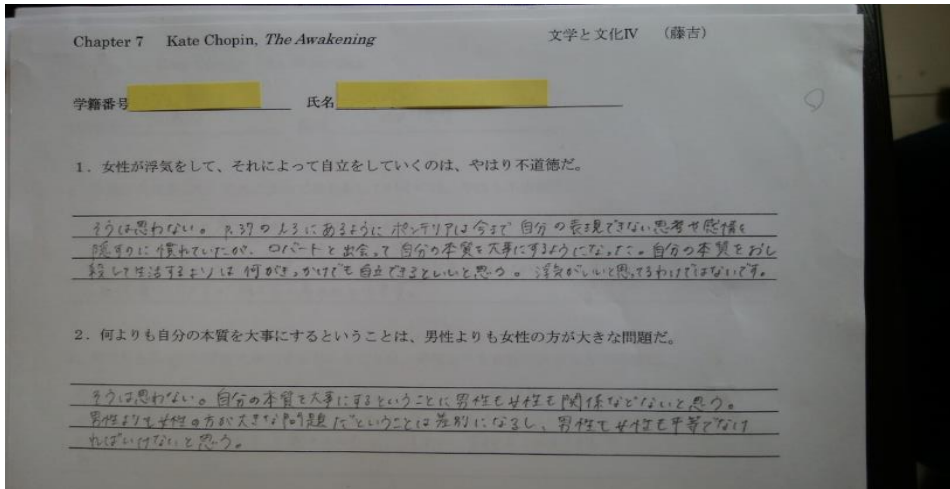 Chapter 7 Kate Chopin, The Awakening 文学と文化Ⅳ (藤吉)
学籍番号 氏名
1．女性が浮気をして、それによって自立をしていくのは、やはり不道徳だ。
そうは思わない。 P.37 の l.3 にあるように ポンテリアは今まで 自分の表現できない思考や感情を
隠すのに慣れていたが、ロバートと出会って 自分の本質を大事にするようになった。自分の本質をおし
殺して生活するよりは 何がきっかけでも自立できるといいと思う。浮気がいいと思ってるわけではないです。
2．何よりも自分の本質を大事にするということは、男性よりも女性の方が大きな問題だ。
そうは思わない。自分の本質を大事にするということに男性も女性も関係などないと思う。
男性よりも女性の方が大きな問題だということは差別になるし、男性も女性も平等でなけ
ればいけないと思う。